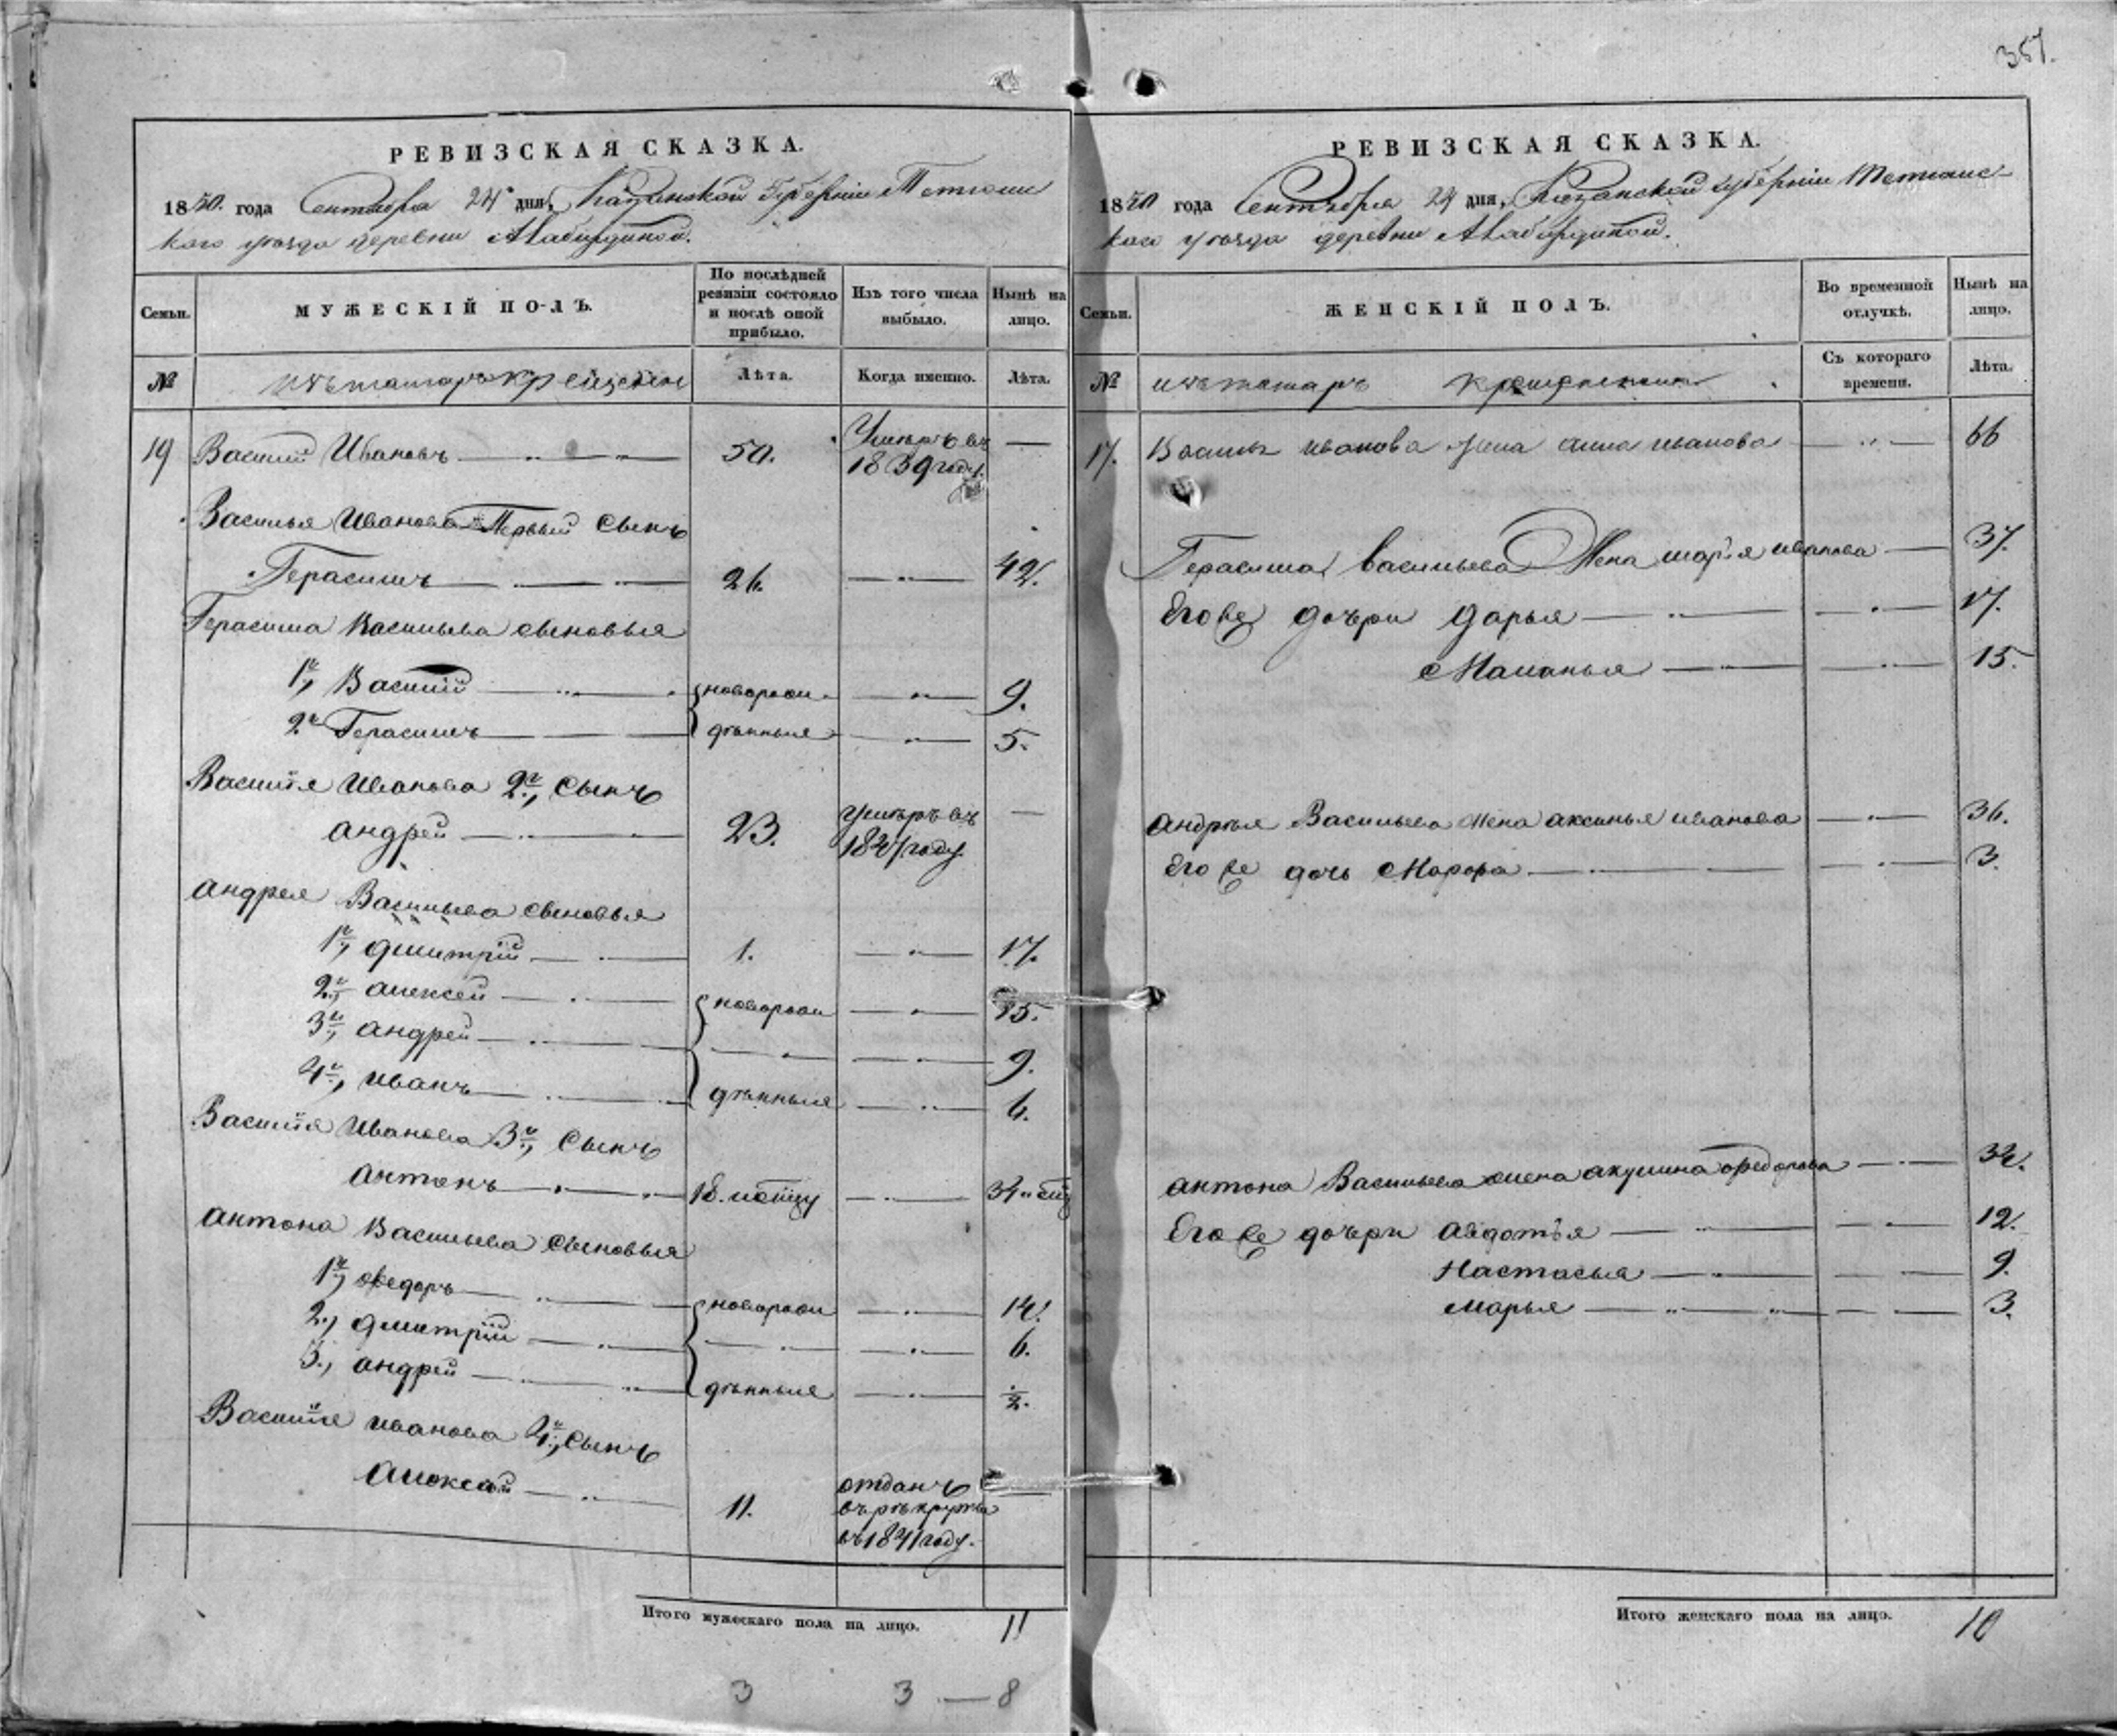 357.
РЕВИЗСКАЯ СКАЗКА.
1850. года Сентября 24 дня, Казанской Губерніи Тетюшс
каго уѣзда деревни Алабирдиной.
Семьи.
МУЖЕСКІЙ ПОЛЪ.
По послѣдней ревизіи состояло и послѣ оной прибыло.
Изъ того числа выбыло.
Нынѣ на лицо.
№
изъ татаръ крещенъ
Лѣта.
Когда именно.
Лѣта.
19 Василій Ивановъ 50. Умеръ въ 1839 году.
Василья Иванова Первый сынъ
Герасимъ 26. 42.
Герасима Васильева сыновья
1й, Василій новорож 9.
2й Герасимъ денные 5.
Василія Иванова 2й, сынъ
Андрей 23. умеръ въ 1847 году.
Андрея Васильева сыновья
1й, Дмитрій 1. 17.
2й, Алексей новорож 15.
3й, Андрей 9.
4й, Иванъ денные 6.
Василія Иванова 3й, сынъ
Антонъ 18. 34.
Антона Васильева сыновья
1й, Федоръ новорож 14.
2., Дмитрій 6.
3., Андрей денные ½.
Василія Иванова 4й, сынъ
Алексей 11. отданъ въ рекруты въ 1841 году.
Итого мужескаго пола на лицо. 11
3 3 — 8
РЕВИЗСКАЯ СКАЗКА.
1850 года Сентября 24 дня, Казанской Губерніи Тетюшс-
каго уѣзда деревни Алабирдиной.
Семьи.
ЖЕНСКІЙ ПОЛЪ.
Во временной отлучкѣ.
Нынѣ на лицо.
№
изъ татаръ крещеныхъ
Съ котораго времени.
Лѣта.
17. Василья Иванова жена Анна Иванова 66
Герасима Васильева Жена Марья Иванова 37.
Его же дочери Дарья 17.
Маланья 15.
Андрея Васильева жена Аксинья Иванова 36.
Его же дочь Марфа 3.
Антона Васильева жена Акулина Федорова 32.
Его же дочери Авдотья 12.
Настасья 9.
Марья 3.
Итого женскаго пола на лицо. 10